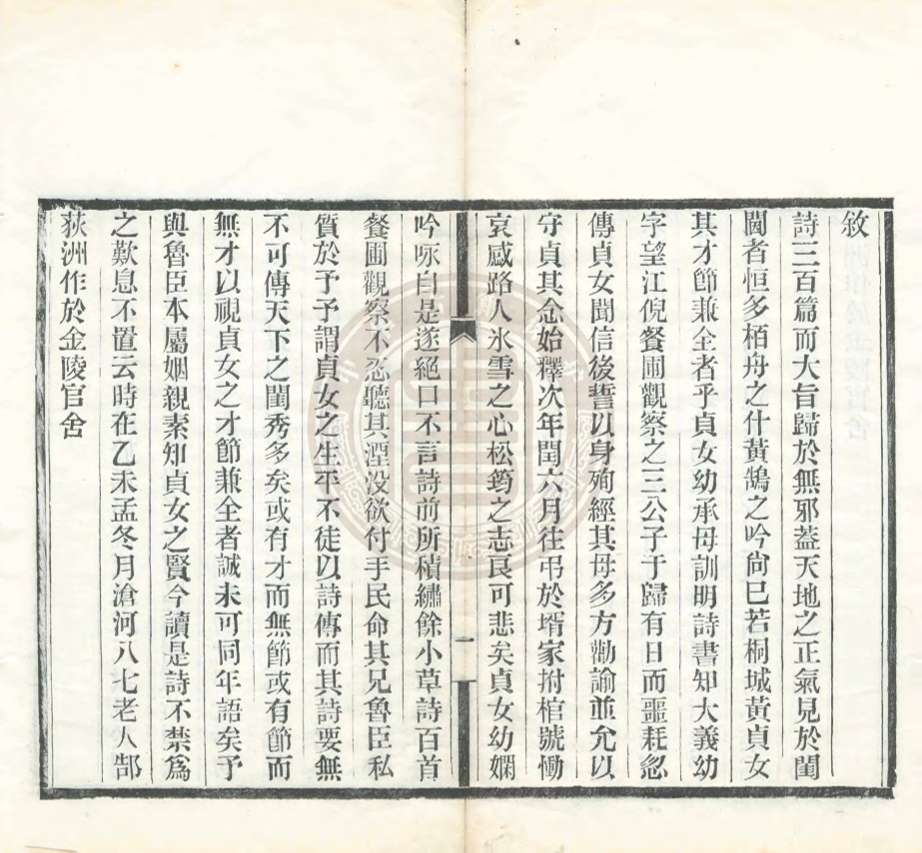 敘
詩三百篇而大旨歸於無邪蓋天地之正氣見於閨
閫者恒多栢舟之什黃鵠之吟尙已若桐城黃貞女
其才節兼全者乎貞女幼承母訓明詩書知大義幼
字望江倪餐圃觀察之三公子于歸有日而噩耗忽
傳貞女聞信後誓以身殉經其母多方勸諭並允以
守貞其念始釋次年閏六月往弔於壻家拊棺號慟
哀感路人氷雪之心松筠之志良可悲矣貞女幼嫻
吟咏自是遂絕口不言詩前所積繡餘小草詩百首
餐圃觀察不忍聽其湮没欲付手民命其兄魯臣私
質於予予謂貞女之生平不徒以詩傳而其詩要無
不可傳天下之閨秀多矣或有才而無節或有節而
無才以視貞女之才節兼全者誠未可同年語矣予
與魯臣本屬姻親素知貞女之賢今讀是詩不禁爲
之歎息不置云時在乙未孟冬月滄河八七老人郜
荻洲作於金陵官舍
一